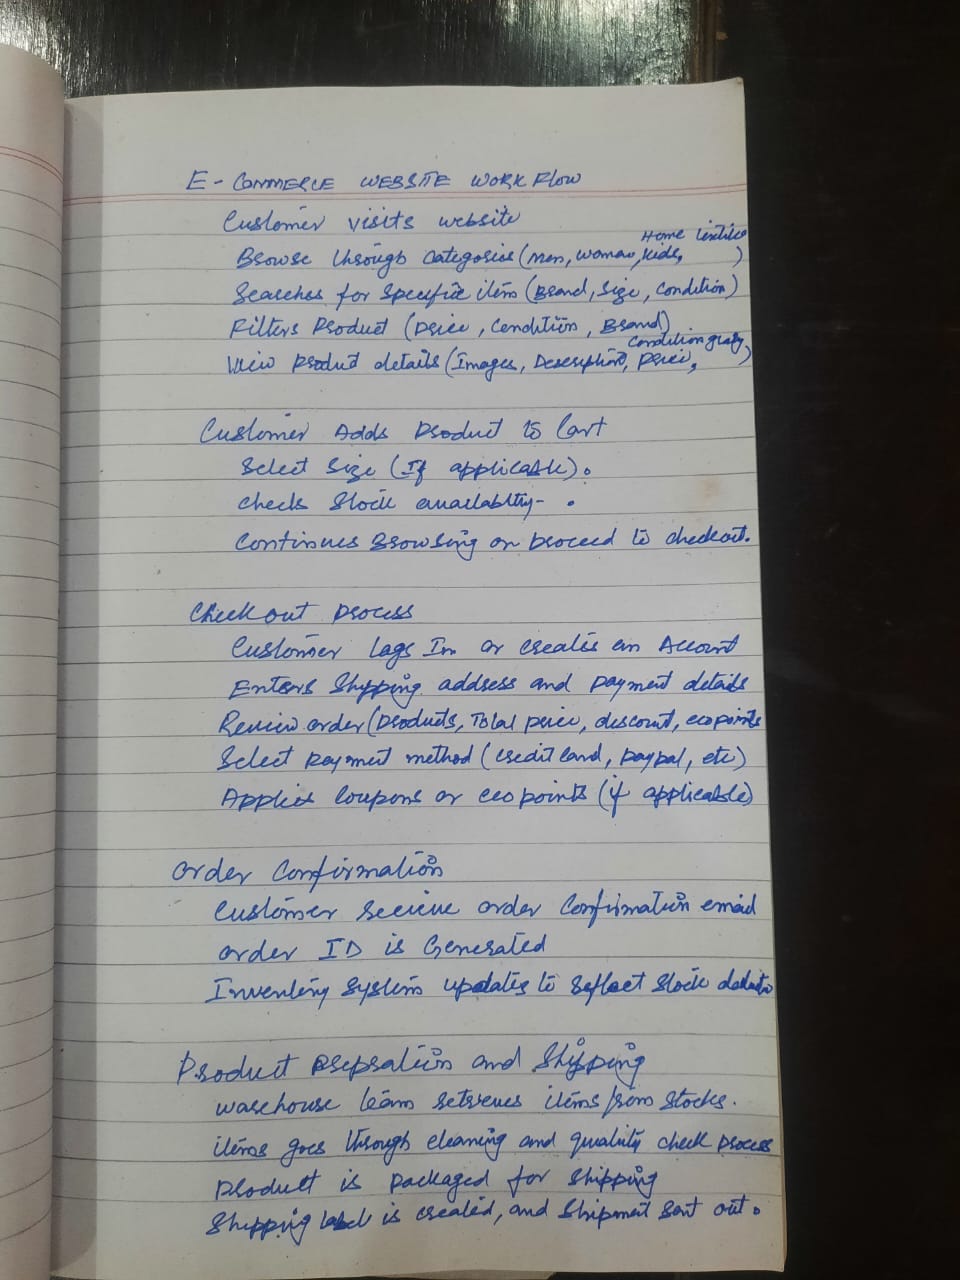 E-COMMERCE WEBSITE WORKFLOW
Customer visits website
Browse through categories (men, woman, kids, Home textiles)
Searches for specific item (Brand, Size, Condition)
Filters Product (price, Condition, Brand)
View product details (Images, Description, price, Condition)
Customer Adds product to Cart
Select Size (If applicable).
checks Stock availablity- .
Continues Browsing or proceed to checkout.
Checkout process
Customer logs In or creates an Account
Enters Shipping address and payment details
Review order (products, Total price, discount, ecopoints
Select payment method (credit card, paypal, etc)
Applies Coupons or ecopoints (if applicable)
Order Confirmation
Customer recieve order Confirmation email
Order ID is Generated
Inventory System updates to reflect Stock deduction
Product prepration and Shipping
warehouse team retrieves items from stocks.
items goes through cleaning and quality check process
Product is packaged for shipping
Shipping label is created, and Shipment sent out.